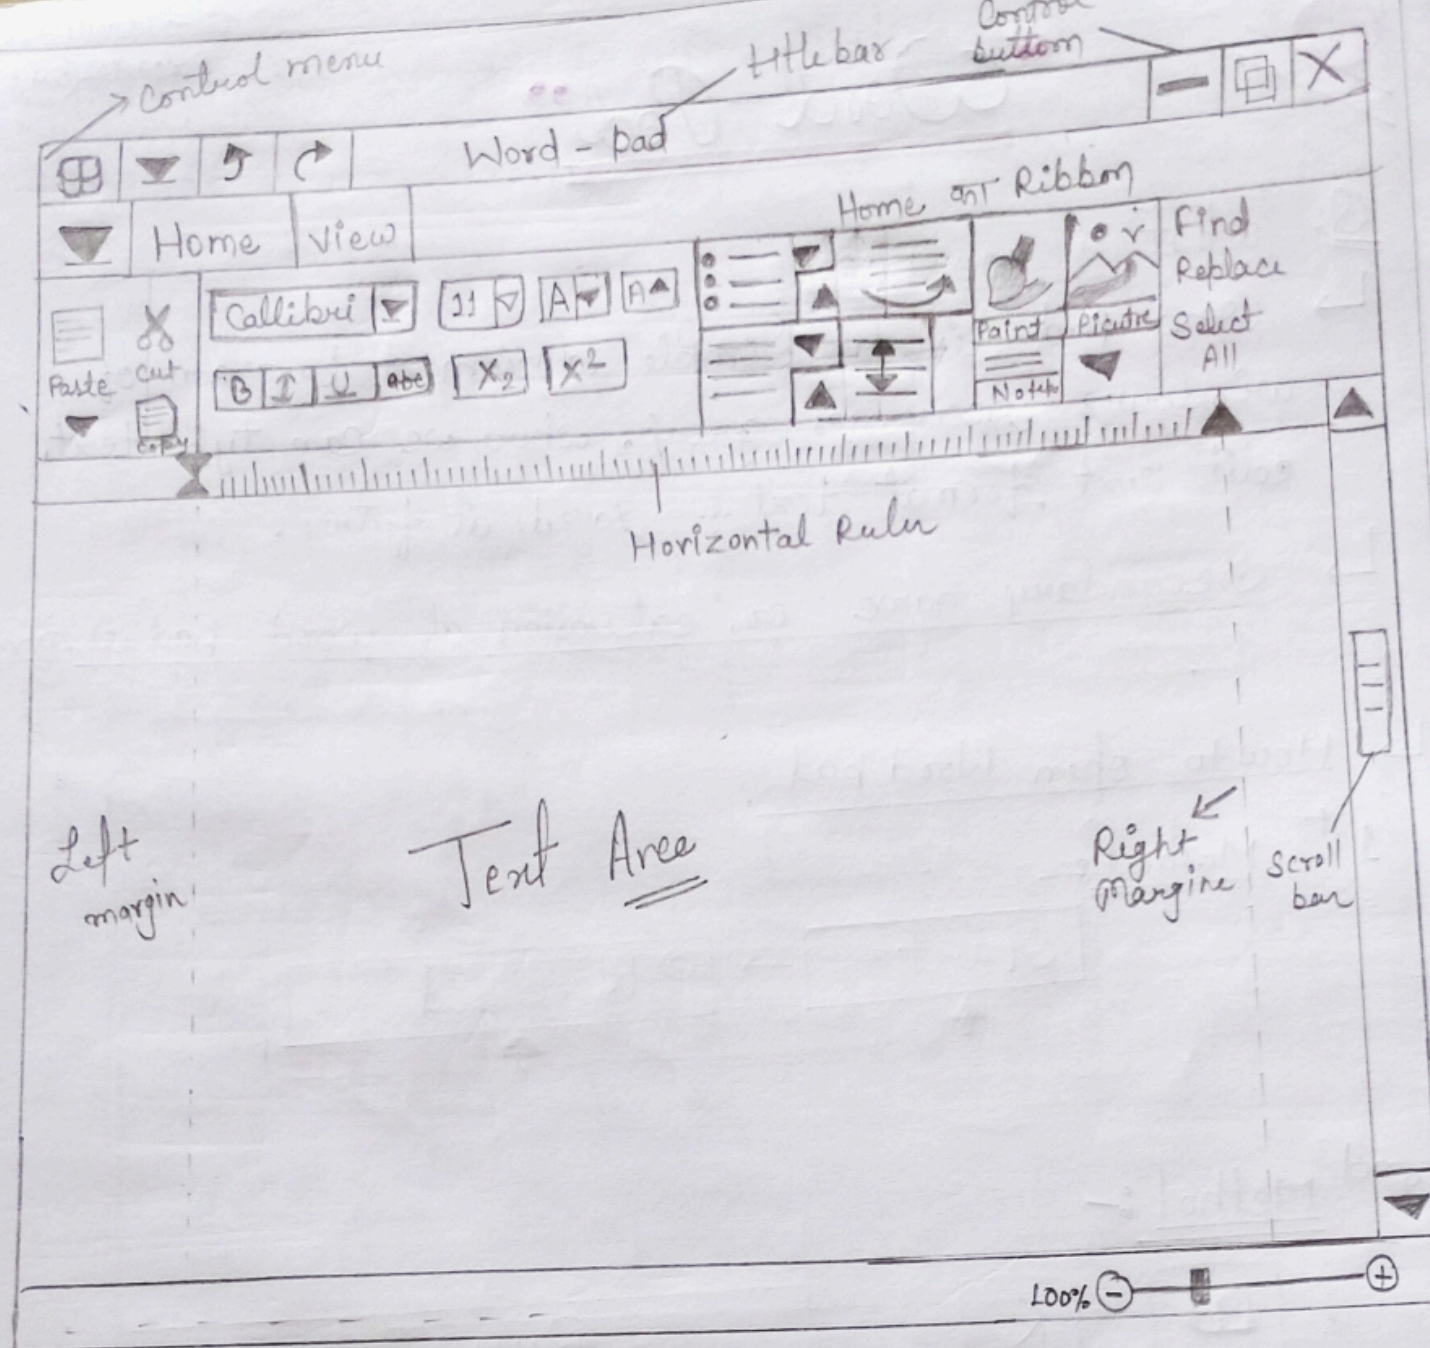 Control menu
titlebar
Control
buttom
Word - Pad
Home का Ribbon
Home
View
Find
Replace
Select
All
Callibri
11
A
A
Paste
Cut
Copy
B I U abc
X₂
X²
Paint
Picutre
Horizontal Ruler
Left
margin
Text Area
Right
Margine
Scroll
bar
100%